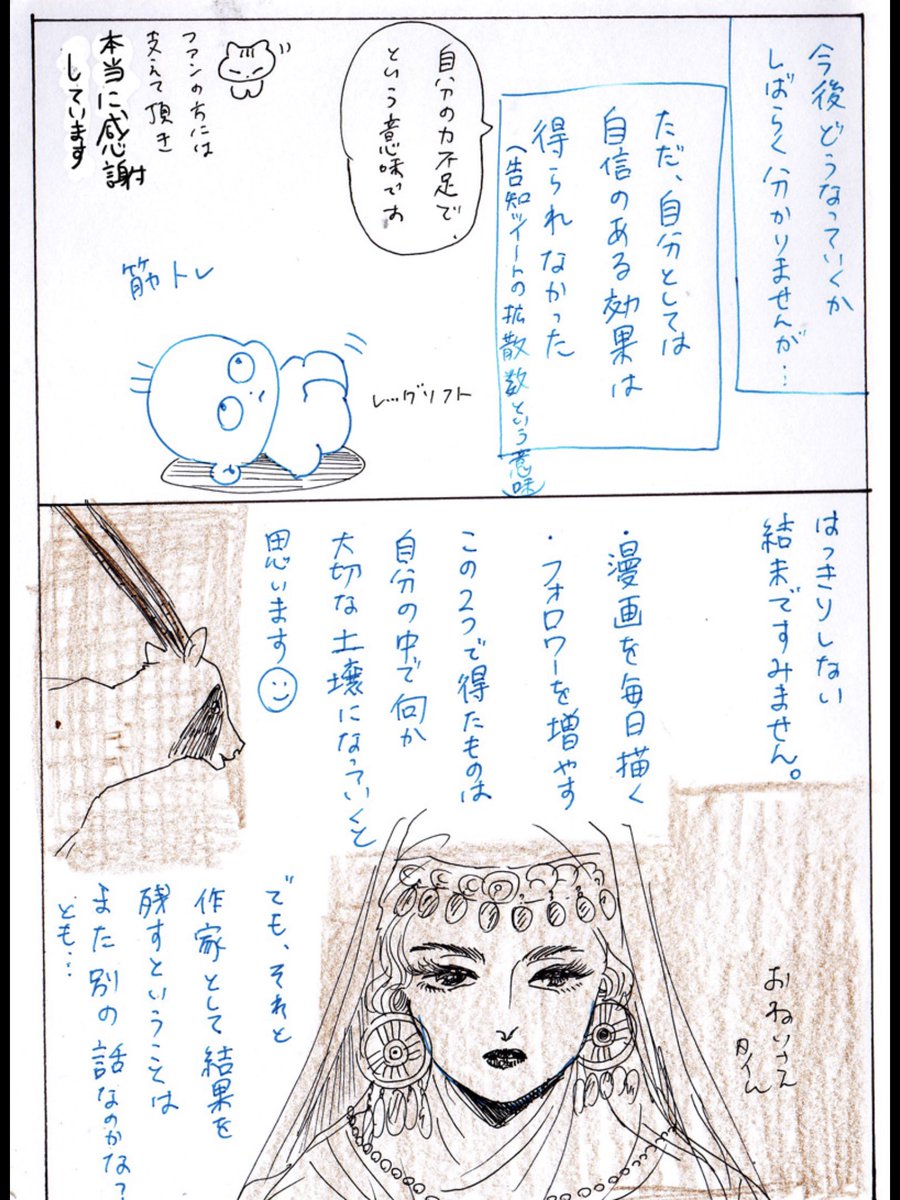 今後どうなっていくか
しばらく分かりませんが…
ただ、自分としては
自信のある効果は
得られなかった
(告知ツイートの拡散数という意味)
自分の力不足で、
という意味です
ファンの方には
支えて頂き
本当に感謝
しています
筋トレ
レッグリフト
はっきりしない
結末ですみません。
・漫画を毎日描く
・フォロワーを増やす
この2つで得たものは
自分の中で何か
大切な土壌になっていくと
思います
でも、それと
作家として結果を
残すということは
また別の話なのかな?
とも…
おねいさん
タイム